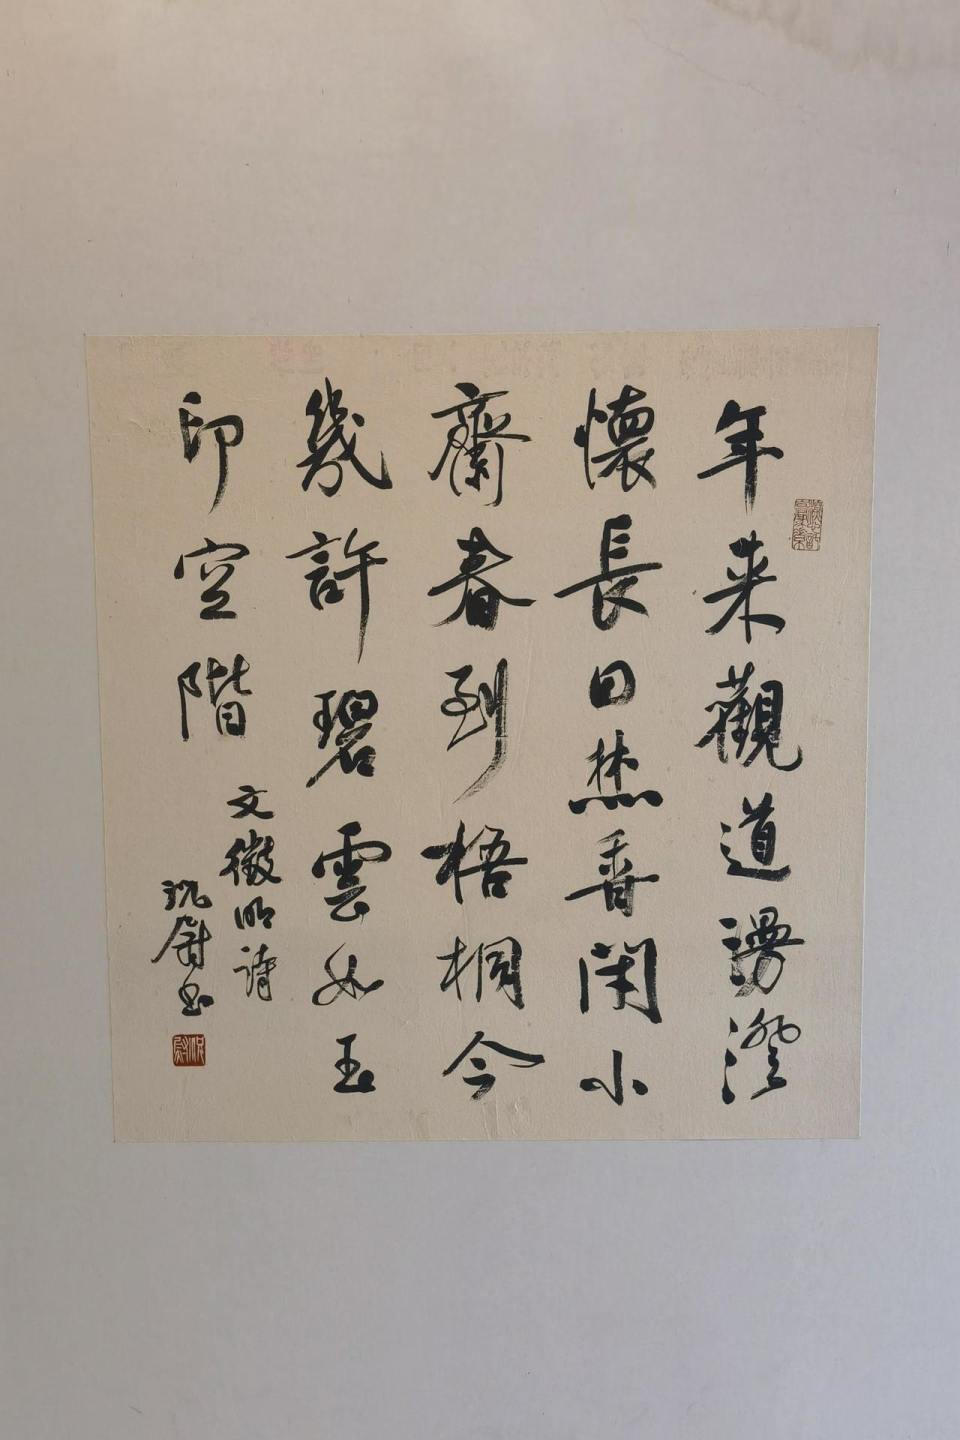 年来觀道漫澄
懷長日焚香閑小
齋春到梧桐今
幾許碧雲如玉
印空階
文徵明詩
沈尉書